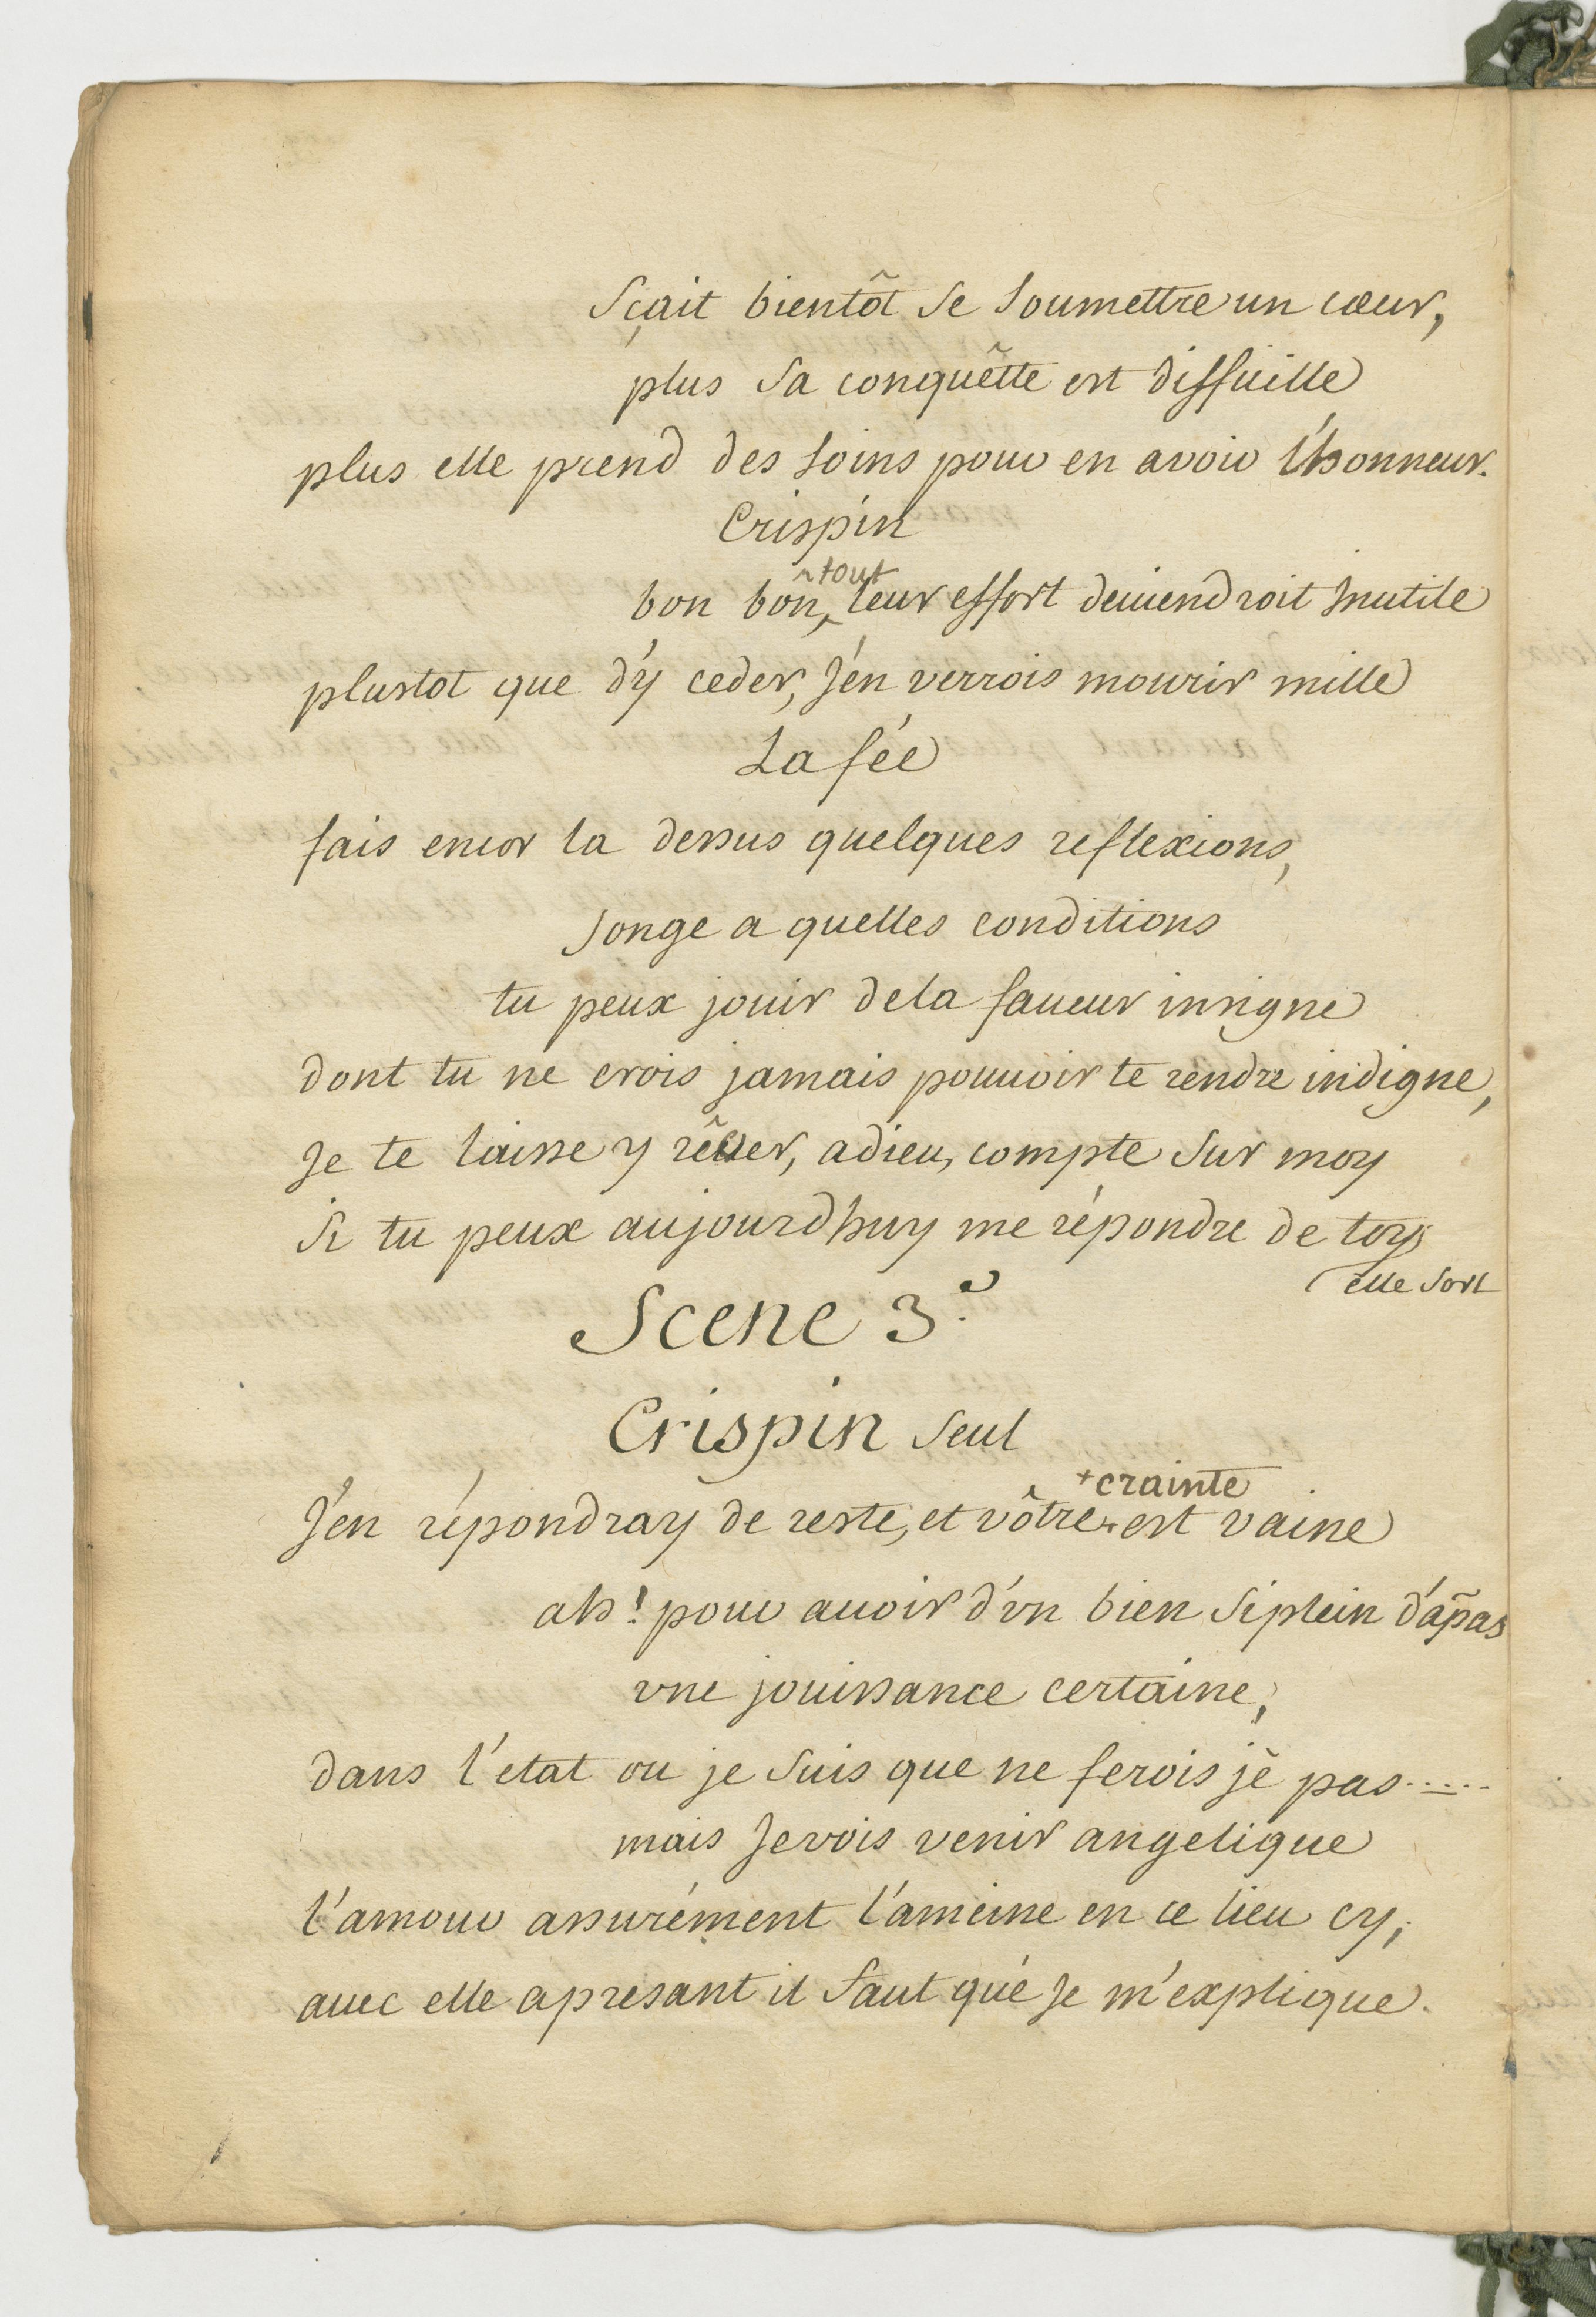 Sçait bientôt se soumettre un cœur,
plus sa conquêtte est difficille
plus elle prend des soins pour en avoir l'honneur.
Crispin
bon bon, tout leur effort deuiendroit Inutile
plustot que d'y ceder, J'en verrois mourir mille
La fée
fais encor la dessus quelques reflexions,
songe a quelles conditions
tu peux jouir dela faueur insigne
dont tu ne crois jamais pouuoir te rendre indigne,
Je te laisse y rêver, adieu, compte sur moy
si tu peux aujourdhuy me répondre de toy
elle sort
Scene 3.e
Crispin seul
J'en répondray de reste, et vôtre + crainte est vaine
ah! pour auoir d'vn bien si plein d'apas
vne jouissance certaine,
dans l'etat ou je suis que ne ferois jë pas.....
mais Je vois venir angelique
l'amour assurément l'ameine en ce lieu cy,
auec elle apresant il faut que Je m'explique.